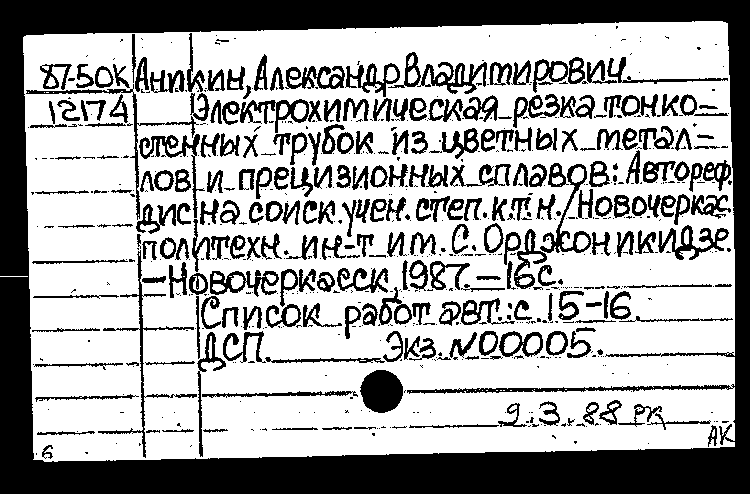 87-50К Аникин, Александр Владимирович.
12174 Электрохимическая резка тонко-
стенных трубок из цветных метал-
лов и прецизионных сплавов: Автореф.
дис на соиск. учен. степ. к.т.н./Новочеркас.
политехн. ин-т им. С. Орджоникидзе.
—Новочеркасск, 1987.—16с.
Список работ авт.: с. 15-16.
ДСП. Экз. №00005.
9.3.88 РК
АК
6